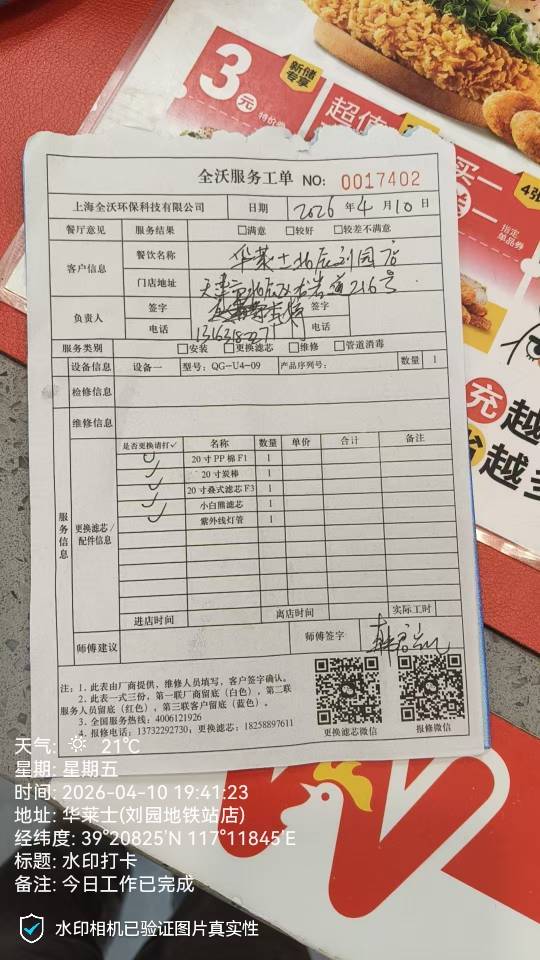 新储
专享
3元
特价券
超值
买一
送一
4张
指定
单品券
充
越
省
越多
全沃服务工单 NO: 0017402
上海全沃环保科技有限公司 日期 2026 年 4 月 10 日
餐厅意见 服务结果 □满意 □较好 □较差不满意
客户信息 餐饮名称 华莱士北辰刘园店
门店地址 天津市北辰区 道216号
负责人 签字 签字
电话 电话
服务类别 □安装 □更换滤芯 □维修 □管道消毒
设备信息 设备一 型号: QG-U4-09 产品序列号: 数量 1
检修信息
维修信息
服务信息
更换滤芯/配件信息
是否更换请打✓ 名称 数量 单价 合计 备注
✓ 20 寸 PP 棉 F1 1
✓ 20 寸炭棒 1
✓ 20 寸叠式滤芯 F3 1
✓ 小白熊滤芯 1
✓ 紫外线灯管 1
进店时间 离店时间 实际工时
师傅建议 师傅签字
注: 1. 此表由厂商提供, 维修人员填写, 客户签字确认。
2. 此表一式三份, 第一联厂商留底 (白色), 第二联
服务人员留底 (红色), 第三联客户留底 (蓝色)。
3. 全国服务热线: 4006121926
4. 报修电话: 13732292730; 更换滤芯: 18258897611
更换滤芯微信 报修微信
天气: 21℃
星期: 星期五
时间: 2026-04-10 19:41:23
地址: 华莱士(刘园地铁站店)
经纬度: 39°20825'N 117°11845'E
标题: 水印打卡
备注: 今日工作已完成
水印相机已验证图片真实性